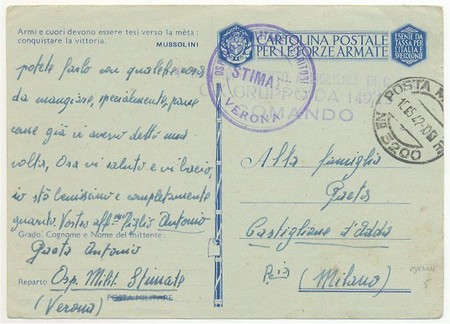 Armi e cuori devono essere tesi verso la mèta:
conquistare la vittoria.
MUSSOLINI
potete farlo con qualche cosa
da mangiare, specialmente, pane
come già vi avevo detto una
volta, Ora vi saluto e vi bacio,
io stò benissimo e completamente
guarito. Vostro aff.mo Figlio Antonio
Grado, Cognome e Nome del mittente:
Gaeta Antonio
Reparto Osp. Milit. Stimate
(Verona)
POSTA MILITARE
CARTOLINA POSTALE
PER LE FORZE ARMATE
ESENTE DA
TASSA PER
L'ITALIA
STIMATE
VERONA
GRUPPO DA 149
COMANDO
POSTA M
3200
Alla Famiglia
Gaeta
Castiglione d'Adda
(Milano)